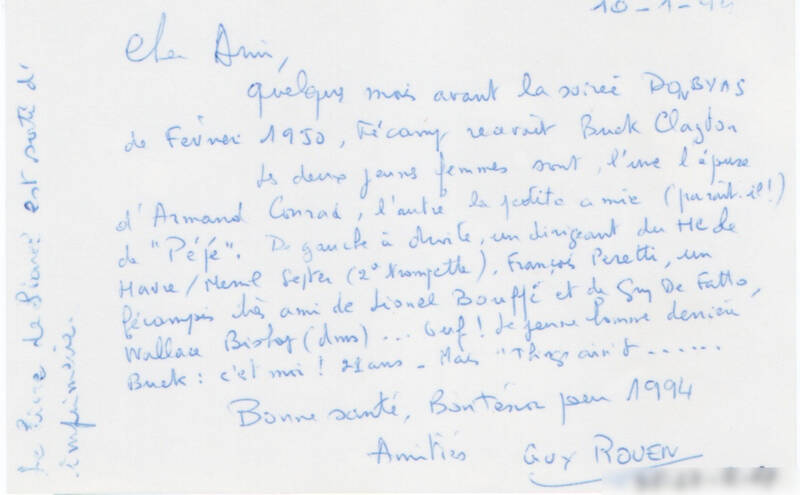 10-1-94
Cher Ami,
Quelques mois avant la soirée DON BYAS
de Février 1950, Fécamp recevait Buck Clayton
Les deux jeunes femmes sont, l'une l'épouse
d'Armand Conrad, l'autre la petite amie (paraît-il!)
de "Péjé". De gauche à droite, un dirigeant du HC de
Havre/Merril Stepter (2e trompette), François Peretti, un
fécampois très ami de Lionel Bouffé et de Guy De Fatto,
Wallace Bishop (dms) ... Ouf! Le jeune homme derrière
Buck: c'est moi! 21 ans - Mais "Things ain't ......
Bonne santé, Bonténor pour 1994
Amitiés GUY ROUEN
Le livre de est sorti d'
imprimerie.